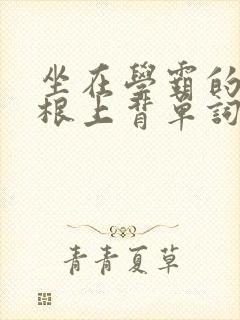 坐在學霸的
根上背單詞
青青夏草